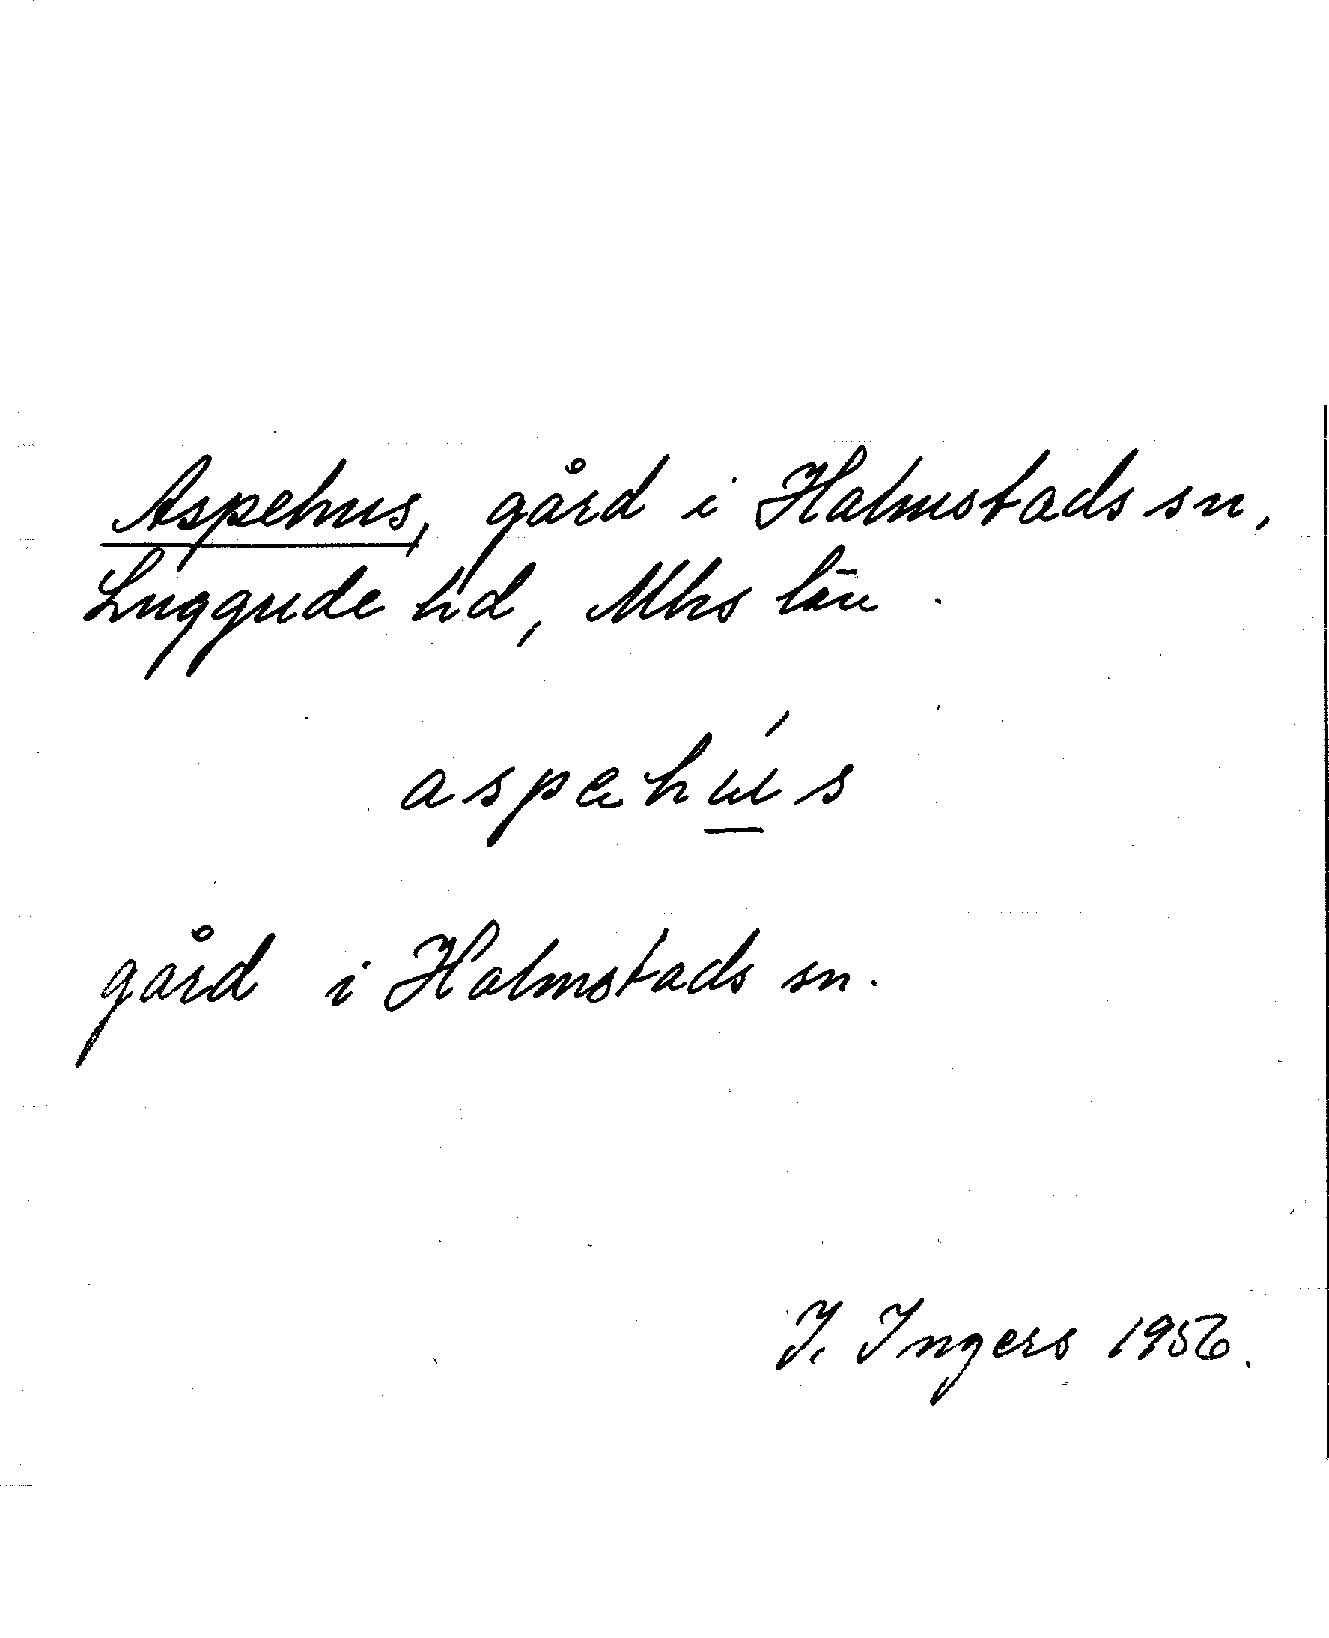 Aspehus, gård i Halmstads sn,
Luggude hd, Mhs län.
aspəhu̲ś
gård i Halmstads sn.
I. Ingers 1956.